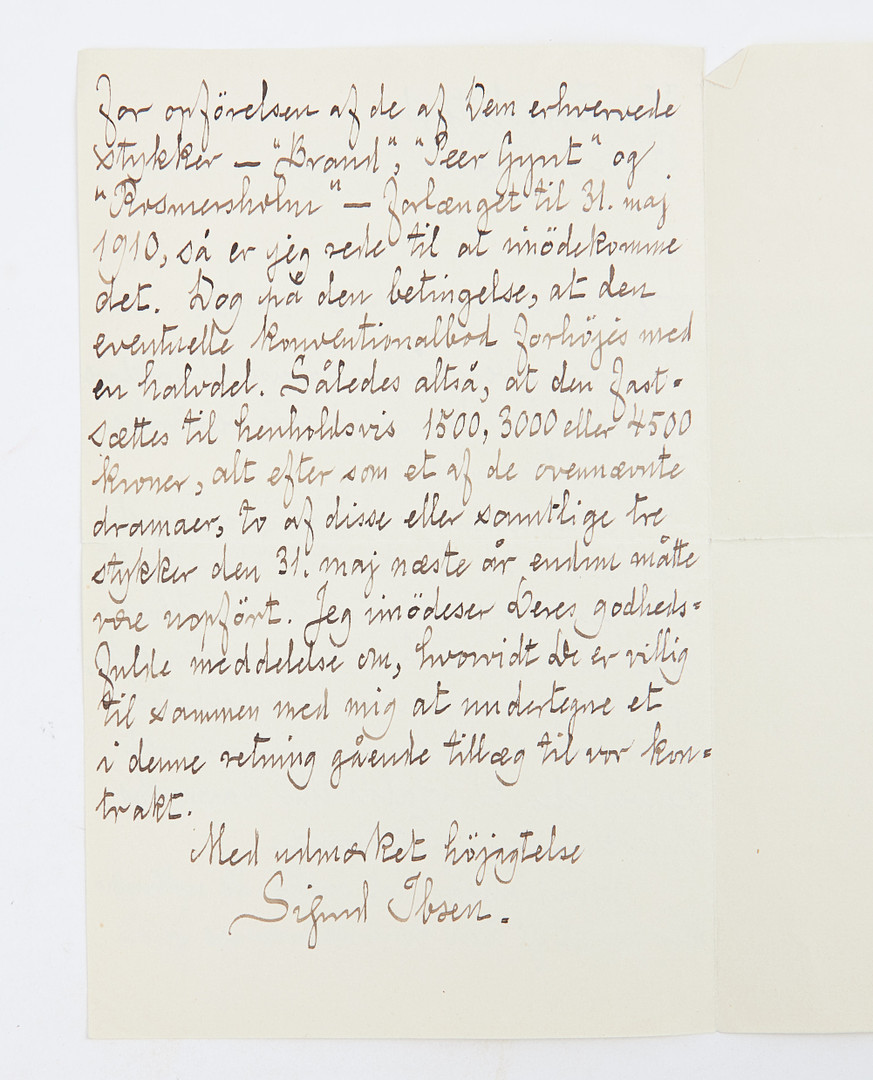 for opförelsen af de af Dem erhvervede
stykker — "Brand", "Peer Gynt" og
"Rosmersholm" — forlænget til 31. maj
1910, så er jeg rede til at imödekomme
det. Dog på den betingelse, at den
eventuelle konventionalbod forhöjes med
en halvdel. Således altså, at den fast-
sættes til henholdsvis 1500, 3000 eller 4500
kroner, alt efter som et af de ovennævnte
dramaer, to af disse eller samtlige tre
stykker den 31. maj næste år endnu måtte
være uopfört. Jeg imödeser Deres godheds-
fulde meddelelse om, hvorvidt De er villig
til sammen med mig at undertegne et
i denne retning gående tillæg til vor kon-
trakt.
Med udmærket höjagtelse
Sigurd Ibsen.